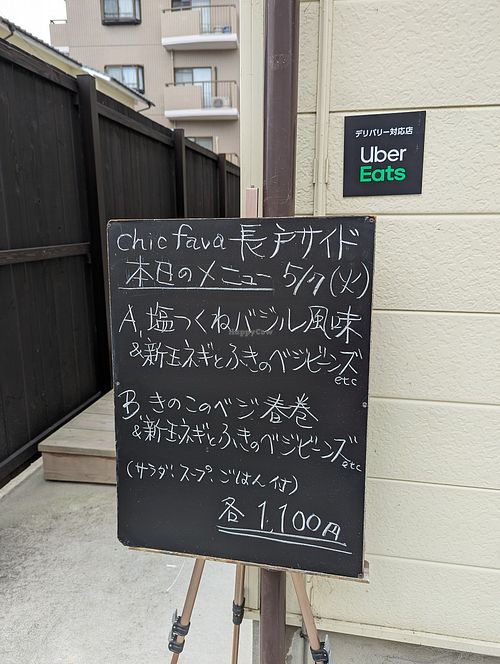 デリバリー対応店
Uber
Eats
chic fava 長戸サイド
本日のメニュー 5/7(火)
A. 塩つくねバジル風味
&新玉ネギとふきのベジビーンズ
etc
B. きのこのベジ春巻
&新玉ネギとふきのベジビーンズ
etc
(サラダ、スープ、ごはん付)
各 1,100円
HappyCow